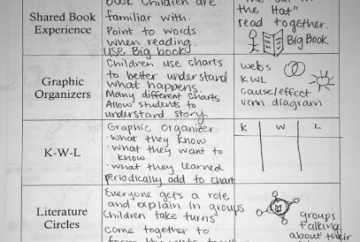 book Children are
familiar with.
Point to words
when reading.
use Big book
Shared Book
Experience
the Hat"
read together.
Big Book
Graphic
Organizers
Children use charts
to better understand
what happens.
Many different Charts
Allow students to
understand story.
webs
KWL
cause/effect
venn diagram
K-W-L
Graphic organizer
· what they know
· what they want to
know
· what they learned
periodically add to chart
K W L
Literature
Circles
Everyone gets a role
and explain in groups
Children take turns
come together to
groups
talking
about their